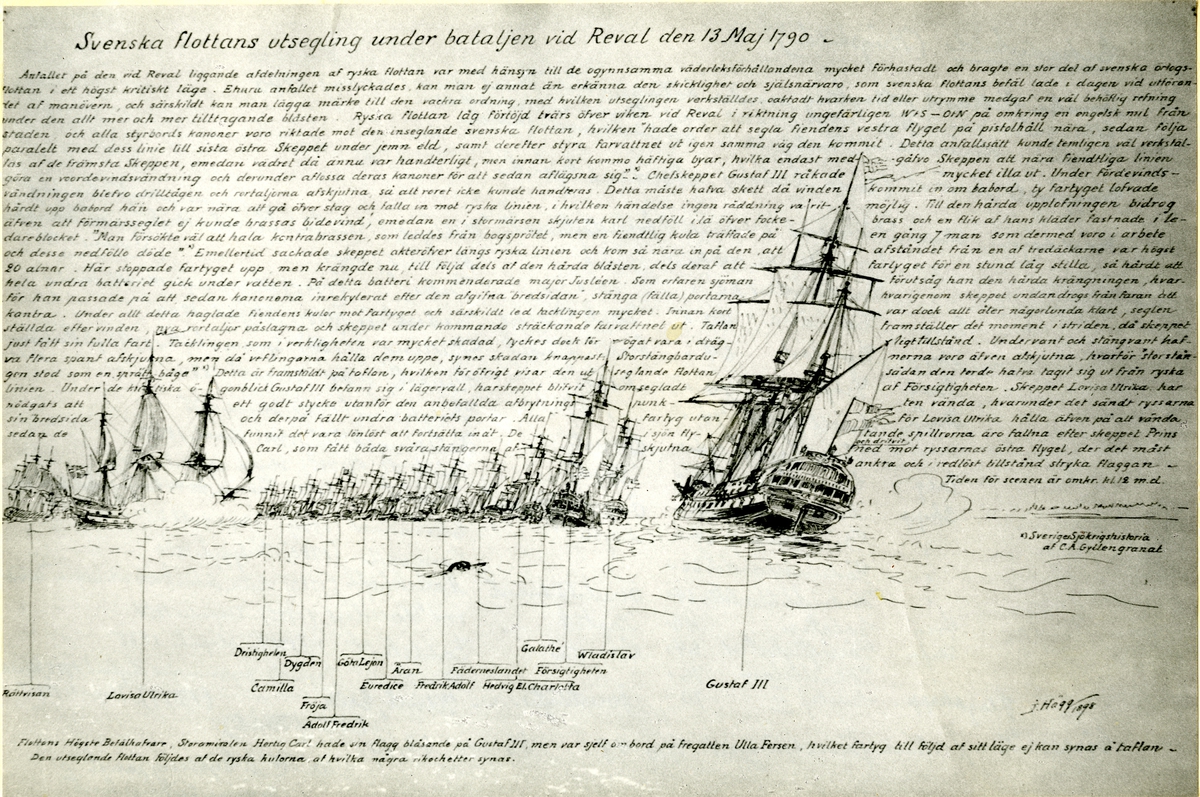 Svenska flottans utsegling under bataljen vid Reval den 13 Maj 1790 -
Anfallet på den vid Reval liggande afdelningen af ryska flottan var med hänsyn till de ogynnsamma väderleksförhållandena mycket förhastadt och bragte en stor del af svenska örlogs-
flottan i ett högst kritiskt läge. Ehuru anfallet misslyckades, kan man ej annat än erkänna den skicklighet och själsnärvaro, som svenska flottans befäl lade i dagen vid utföran-
det af manövern, och särskildt kan man lägga märke till den vackra ordning, med hvilken utseglingen verkställdes, oaktadt hvarken tid eller utrymme medgaf en väl behöflig refning
under den allt mer och mer tilltagande blåsten. Ryska flottan låg förtöjd tvärs öfver viken vid Reval i riktning ungefärligen WtS - OtN på omkring en engelsk mil från
staden, och alla styrbords kanoner voro riktade mot den inseglande svenska flottan, hvilken hade order att segla fiendens vestra flygel på pistolhåll nära, sedan följa
paralelt med dess linie till sista östra Skeppet under jemn eld, samt derefter styra farvattnet ut igen samma väg den kommit. Detta anfallssätt kunde temligen väl verkstäl-
las af de främsta Skeppen, emedan vädret då ännu var handterligt, men innan kort kommo häftiga byar, hvilka endast med- gåfvo Skeppen att nära fiendtliga linien
göra en fördevindsvändning och derunder aflossa deras kanoner för att sedan aflägsna sig. Chefskeppet Gustaf III råkade mycket illa ut. Under fördevinds-
vändningen blefvo drilltågen och rortaljorna afskjutna, så att roret icke kunde handteras. Detta måste hafva skett då vinden kommit in om babord, ty fartyget lofvade
hårdt upp babord hän och var nära att gå öfver stag och falla in mot ryska linien, i hvilken händelse ingen räddning varit möjlig. Till den hårda upplofningen bidrog
äfven att förmärsseglet ej kunde brassas bidevind, emedan en i stormärsen skjuten karl nedföll i lä öfver focke- brass och en flik af hans kläder fastnade i le-
dareblocket. "Man försökte väl att hala kontrabrassen, som leddes från bogsprötet, men en fiendtlig kula träffade på en gång 7 man som dermed voro i arbete
och desse nedföllo döde". Emellertid sackade skeppet akteröfver längs ryska linien och kom så nära inpå den, att afståndet från en af tredäckarne var högst
20 alnar. Här stoppade fartyget upp men krängde nu, till följd dels af den hårda blåsten, dels deraf att fartyget för en stund låg stilla, så hårdt att
hela undra batteriet gick under vatten. På detta batteri kommenderade major Jusleen. Som erfaren sjöman förutsåg han den hårda krängningen, hvar-
för han passade på att sedan kanonerna inrekylerat efter den afgifna "bredsidan", stänga (fälla) portarna, hvarigenom skeppet undandrogs från faran att
kantra. Under allt detta haglade fiendens kulor mot fartyget och särskildt led tacklingen mycket. Innan kort var dock allt åter någorlunda klart, seglen
ställda efter vinden, nya rortaljor påslagna och skeppet under kommando sträckande farvattnet ut. Taflan framställer det moment i striden, då skeppet
just fått sin fulla fart. Tacklingen, som i verkligheten var mycket skadad, tyckes dock för ögat vara i dräg- ligt tillstånd. Undervant och stängvant haf-
va flera spant afskjutna, men då veflingarna hålla dem uppe, synes skadan knappast. Storstängbardu- nerna voro äfven afskjutna, hvarför "storstän-
gen stod som en spräd båge". Detta är framstäldt på taflan, hvilken föröfrigt visar den ut- seglande flottan sådan den terde hafva tagit sig ut från ryska
linien. Under de kritiska ö- gonblick Gustaf III befann sig i lägervall, har skeppet blifvit omsegladt af Försigtigheten. Skeppet Lovisa Ulrika har
nödgats att ett godt stycke utanför den anbefallda afbrytnings- punk- ten vända, hvarunder det sändt ryssarna
sin bredsida och derpå fällt undra batteriets portar. Alla fartyg utan för Lovisa Ulrika hålla äfven på att vända,
sedan de funnit det vara lönlöst att fortsätta inåt. De i sjön fly- tande spillrorna äro fallna efter skeppet Prins
Carl, som fått båda svåra stängerna af- skjutna och drifvit ned mot ryssarnas östra flygel, der det måst
ankra och i redlöst tillstånd stryka flaggan -
Tiden för scenen är omkr. kl. 12 m.d.
*) Sveriges Sjökrigshistoria
af C.A. Gyllengranat
Galathé
Dristigheten Wladislav
Dygden Göta Lejon Äran Fäderneslandet Försigtigheten
Rättvisan Lovisa Ulrika Camilla Euredice Fredrik Adolf Hedvig El. Charlotta Gustaf III
Fröja
Adolf Fredrik
J. Hägg/1898
Flottans Högste Befälhafvare, Storamiralen Hertig Carl hade sin flagg blåsande på Gustaf III, men var sjelf ombord på fregatten Ulla Fersen, hvilket fartyg till följd af sitt läge ej kan synas å taflan -
Den utseglande flottan följdes af de ryska kulorna, af hvilka några rikochetter synas.